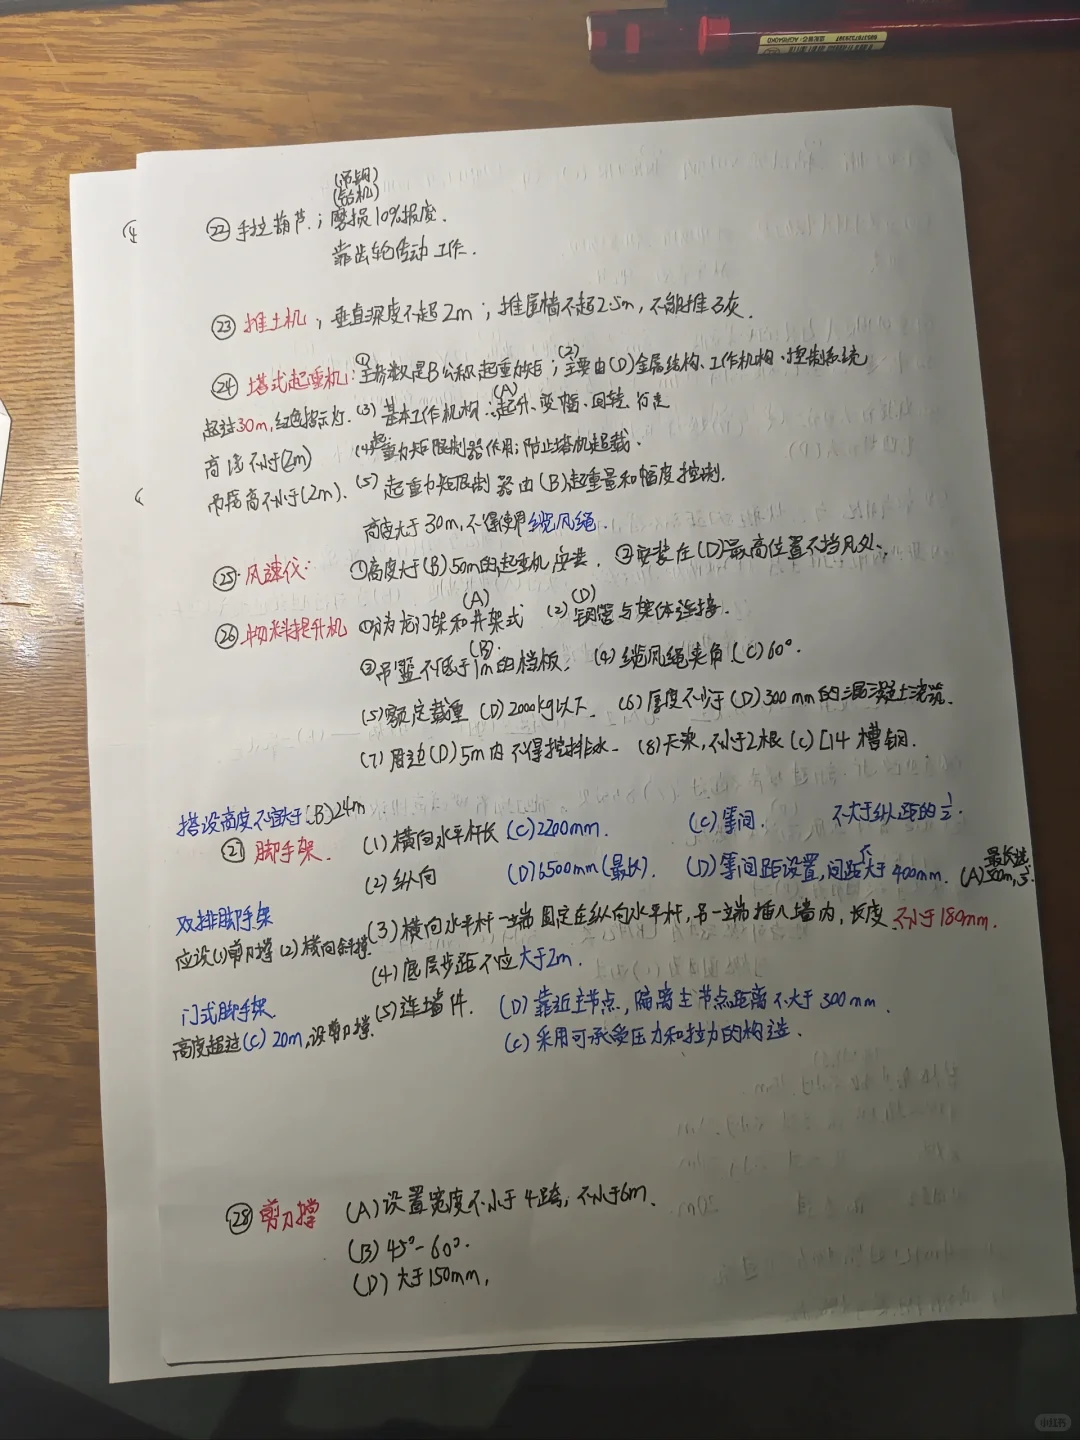 (吊钩)
(钻机)
㉒ 手拉葫芦：磨损10%报废．
靠齿轮传动工作．
㉓ 推土机；垂直深度不超2m；推屋墙不超2.5m，不能推石灰．
㉔ 塔式起重机：① 主参数是B公称起重力矩；(2) 主要由(D)金属结构、工作机构、控制系统
超过30m，红色指示灯． (3) 基本工作机构：(A)起升、变幅、回转、行走
高度不小于(2m) (4) 起重力矩限制器作用；防止塔机超载．
高不小于(2m)． (5) 起重力矩限制器由(B)起重量和幅度控制．
高度大于30m，不得使用缆风绳．
㉕ 风速仪： ①高度大于(B)50m的起重机安装． ②安装在(D)最高位置不挡风处．
㉖ 物料提升机 ①分为龙门架和井架式(A) (2) 钢管与架体连接(D)．
③吊篮不低于1m(B)的档板． (4) 缆风绳夹角(C)60°．
(5)额定载重(D)2000kg以下． (6)厚度不少于(D)300mm的混凝土浇筑．
(7)周边(D)5m内不得挖排水． (8)天梁，不小于2根(C)[14槽钢．
搭设高度不宜大于(B)24m
㉗ 脚手架． (1)横向水平杆长(C)2200mm． (C)等间． 不大于纵距的1/2．
(2)纵向 (D)6500mm(最长)． (D)等间距设置，间距大于400mm． (A)
双排脚手架
应设(1)剪刀撑(2)横向斜撑． (3)横向水平杆一端固定在纵向水平杆，另一端插入墙内，长度不小于180mm．
(4)底层步距不应大于2m．
门式脚手架
高度超过(C)20m，设剪刀撑． (5)连墙件． (D)靠近主节点，隔离主节点距离不大于300mm．
(C)采用可承受压力和拉力的构造．
㉘ 剪刀撑 (A)设置宽度不小于4跨，不小于6m．
(B)45°-60°．
(D)大于150mm，
小红书